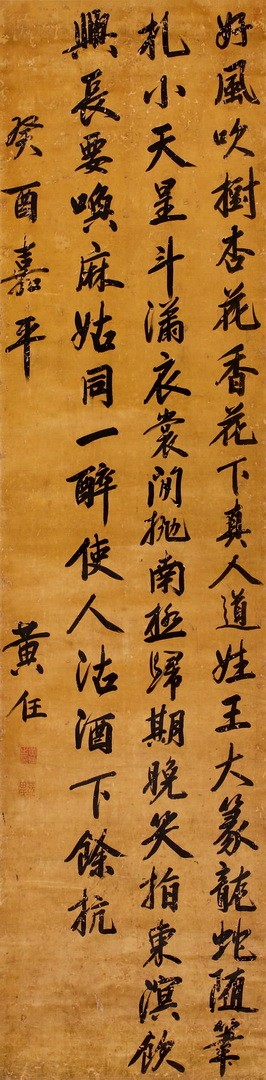 好風吹樹杏花香花下真人道姓王大篆龍蛇隨筆
札小天星斗滿衣裳閒抛南極歸期晚笑拍東溟飲
興長要喚麻姑同一醉使人沽酒下餘杭
癸酉嘉平
黃任